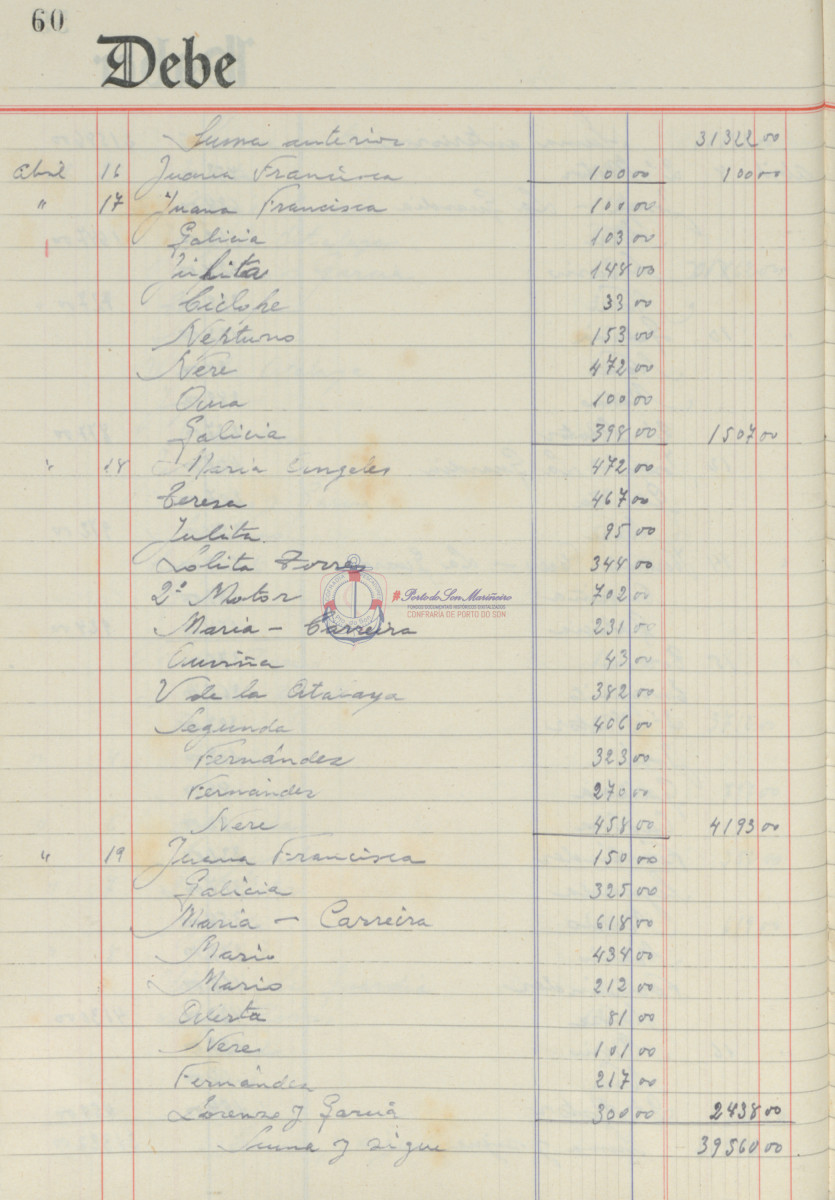 60
Debe
Suma anterior 31322 00
Abril 16 Juana Francisca 100 00 100 00
" 17 Juana Francisca 100 00
Galicia 103 00
Julita 148 00
Ciclope 33 00
Neptuno 153 00
Nere 472 00
100 00
Galicia 398 00 1507 00
" 18 Maria Angeles 472 00
Teresa 467 00
Julita 95 00
Lolita Torres 344 00
2º Motor 702 00
Maria - Carreira 231 00
43 00
V de la Atalaya 382 00
Segunda 406 00
Fernández 323 00
Fernández 270 00
Nere 458 00 4193 00
" 19 Juana Francisca 150 00
Galicia 325 00
Maria - Carreira 618 00
Mario 434 00
Mario 212 00
81 00
Nere 101 00
Fernández 217 00
Lorenzo y García 300 00 2438 00
Suma y sigue 39560 00
#Porto do Son Mariñeiro
FONDOS DOCUMENTAIS HISTÓRICOS DIXITALIZADOS
CONFRARÍA DE PORTO DO SON